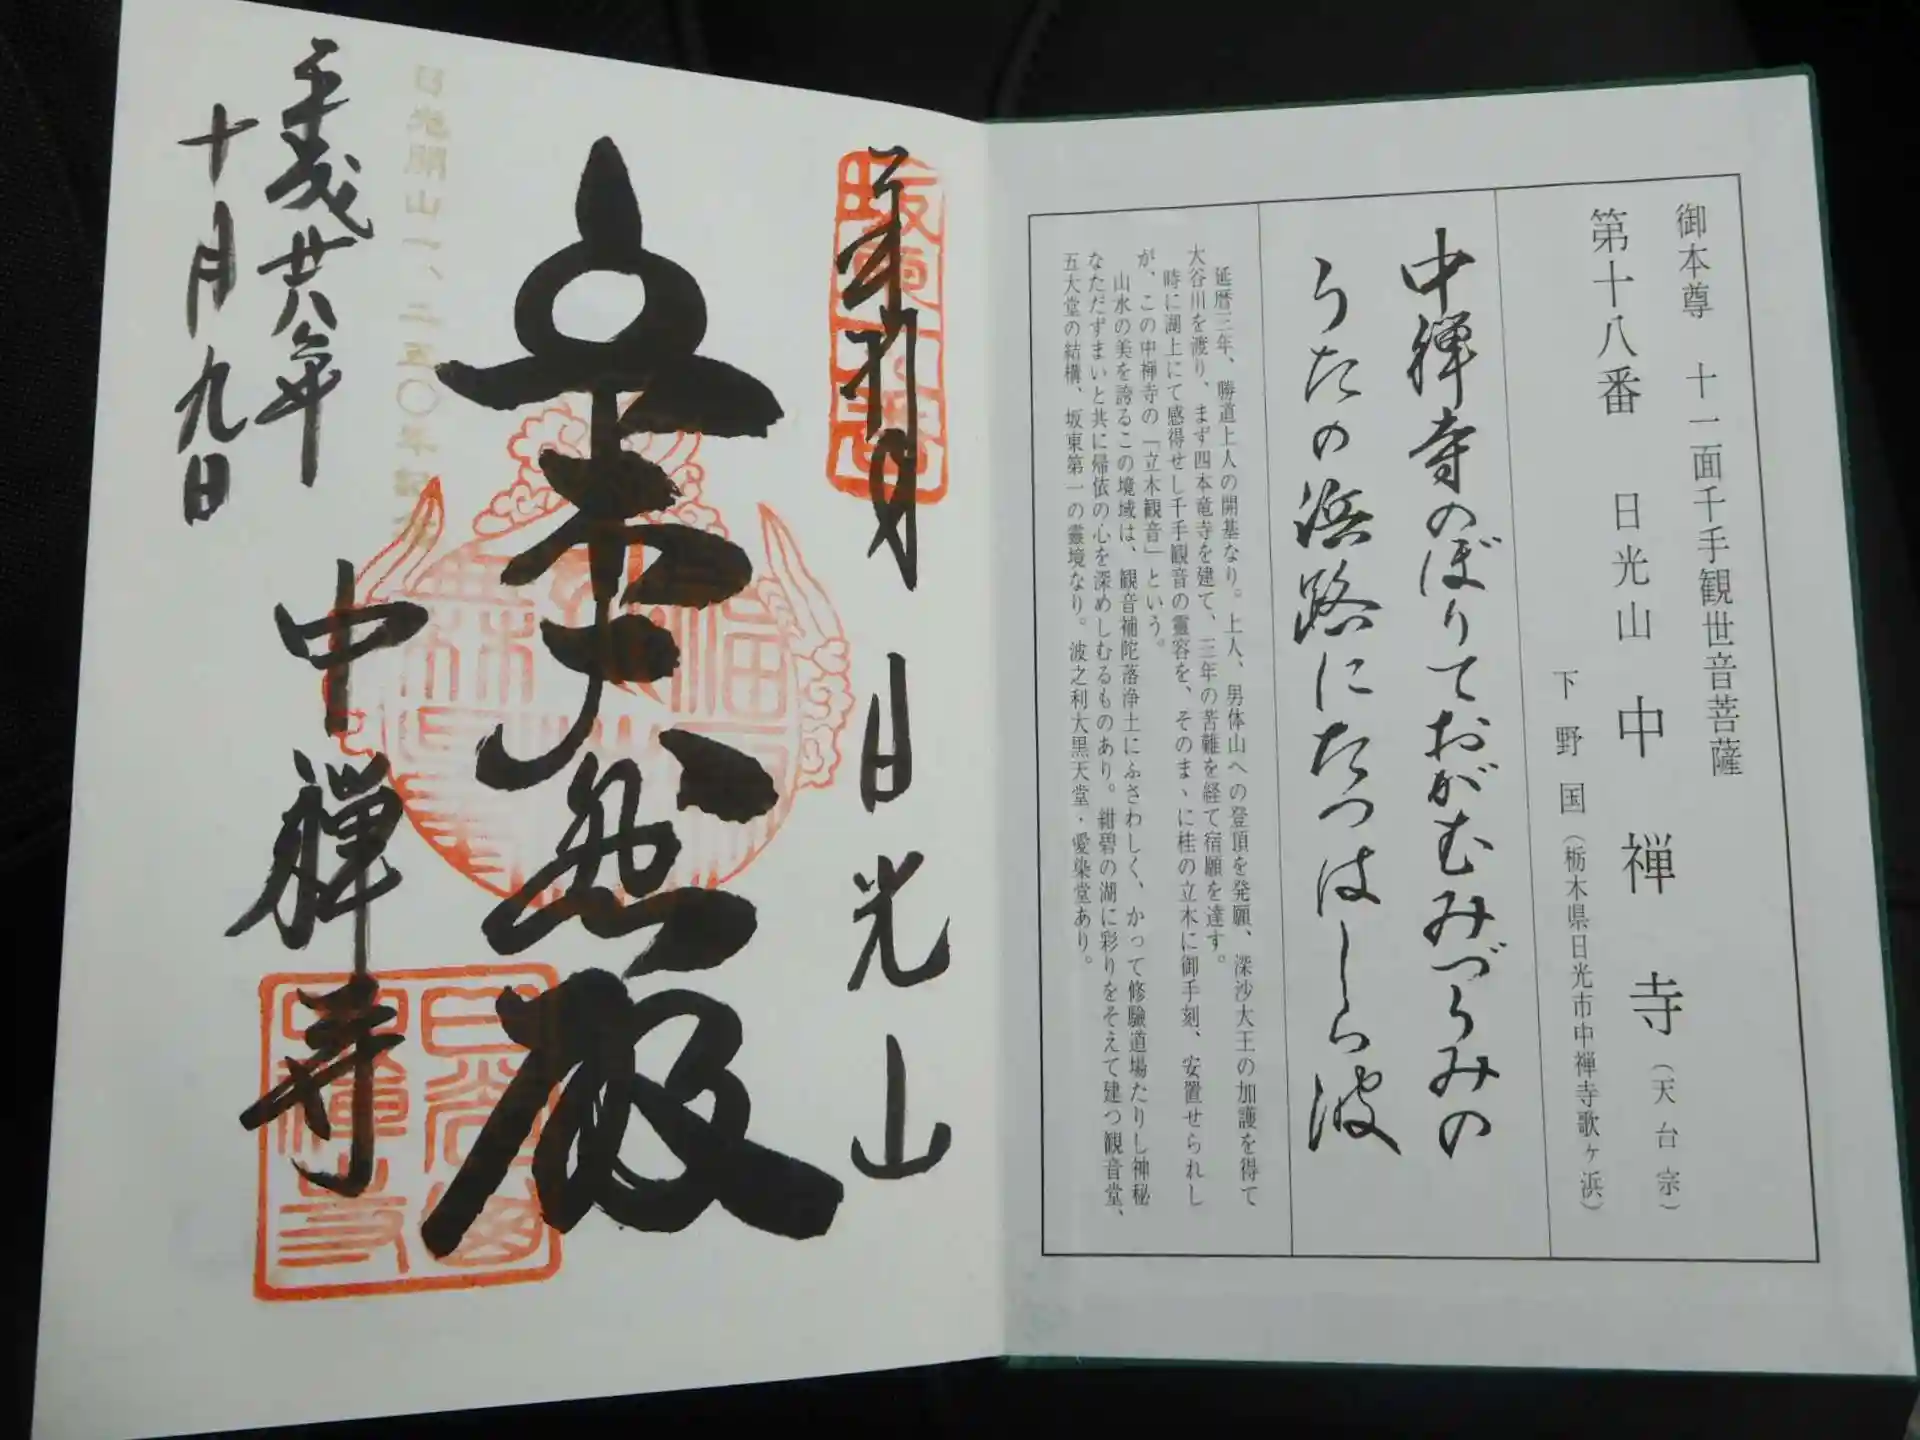 御本尊 十一面千手観世音菩薩
第十八番 日光山 中禅寺（天台宗）
下野国（栃木県日光市中禅寺歌ヶ浜）
中禅寺のぼりておがむみづうみの
うたの浜路にたつはしら波
延暦三年、勝道上人の開基なり。上人、男体山への登頂を発願、深沙大王の加護を得て
大谷川を渡り、まず四本竜寺を建て、三年の苦難を経て宿願を達す。
時に湖上にて感得せし千手観音の霊容を、そのまゝに桂の立木に御手刻、安置せられし
が、この中禅寺の「立木観音」という。
山水の美を誇るこの境域は、観音補陀落浄土にふさわしく、かって修驗道場たりし神秘
なたたずまいと共に帰依の心を深めしむるものあり。紺碧の湖に彩りをそえて建つ観音堂、
五大堂の結構、坂東第一の霊境なり。波之利大黒天堂・愛染堂あり。
日光山
中禅寺
日光開山一、二五〇年記
平成廿八年
十月九日